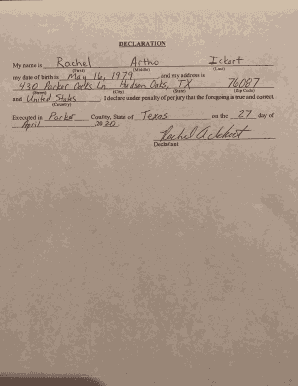 DECLARATION
My name is Rachel Artho Ickert
(First) (Middle) (Last)
my date of birth is May 16, 1979 and my address is
430 Parker Oaks Ln Hudson Oaks, TX 76087
(Street) (City) (State) (Zip Code)
and United States I declare under penalty of perjury that the foregoing is true and correct.
(Country)
Executed in Parker County, State of Texas on the 27 day of
April 2020
Rachel A Ickert
Declarant